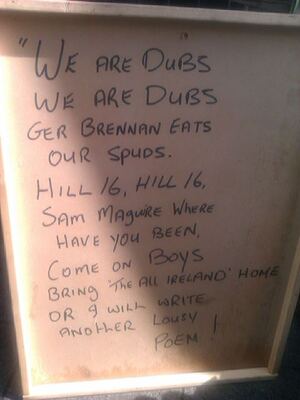 "WE ARE DUBS
WE ARE DUBS
GER BRENNAN EATS
OUR SPUDS.
HILL 16, HILL 16,
SAM MAGUIRE WHERE
HAVE YOU BEEN,
COME ON BOYS
BRING 'THE ALL IRELAND' HOME
OR I WILL WRITE
ANOTHER LOUSY
POEM !